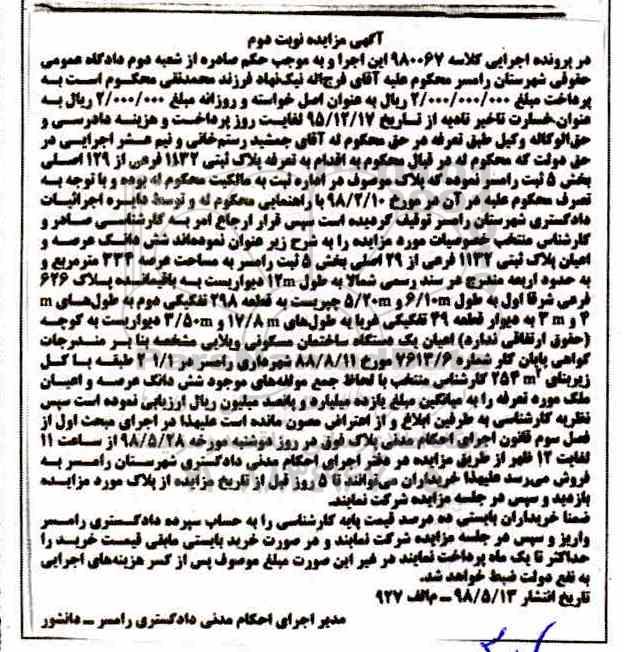 آگهی مزایده نوبت دوم
در پرونده اجرایی کلاسه ۹۸۰۰۶۷ این اجرا و به موجب حکم صادره از شعبه دوم دادگاه عمومی
حقوقی شهرستان رامسر محکوم علیه آقای فرج‌اله نیک‌نهاد فرزند محمدتقی محکوم است به
پرداخت مبلغ ۲/۰۰۰/۰۰۰/۰۰۰ ریال به عنوان اصل خواسته و روزانه مبلغ ۲/۰۰۰/۰۰۰ ریال به
عنوان خسارت تاخیر تادیه از تاریخ ۹۵/۱۲/۱۷ لغایت روز پرداخت و هزینه دادرسی و
حق‌الوکاله وکیل طبق تعرفه در حق محکوم له آقای جمشید رستم‌خانی و نیم عشر اجرایی در
حق دولت که محکوم له در قبال محکوم به اقدام به تعرفه پلاک ثبتی ۱۴۳۲ فرعی از ۱۲۹ اصلی
بخش ۵ ثبت رامسر نموده که پلاک موصوف در اداره ثبت به مالکیت محکوم له بوده و با توجه به
تصرف محکوم علیه در آن در مورخ ۹۸/۲/۱۰ با راهنمایی محکوم له و توسط دایره اجرائیات
دادگستری شهرستان رامسر توقیف گردیده است سپس قرار ارجاع امر به کارشناسی صادر و
کارشناس منتخب خصوصیات مورد مزایده را به شرح زیر عنوان نموده‌اند شش دانگ عرصه و
اعیان پلاک ثبتی ۱۱۳۲ فرعی از ۲۹ اصلی بخش ۵ ثبت رامسر به مساحت عرصه ۳۳۴ مترمربع و
به حدود اربعه مندرج در سند رسمی شمالا به طول ۱۲m دیواریست به باقیمانده پلاک ۶۲۶
فرعی شرقا اول به طول ۶/۱۰m و ۵/۲۰m چپریست به قطعه ۲۹۸ تفکیکی دوم به طول‌های m
۴ و ۳ m به دیوار قطعه ۴۹ تفکیکی غربا به طول‌های ۱۷/۸ m و ۳/۵۰m دیواریست به کوچه
(حقوق ارتفاقی ندارد) اعیان یک دستگاه ساختمان مسکونی ویلایی مشخصه بنا بر مندرجات
گواهی پایان کار شماره ۷۶۱۳/۶ مورخ ۸۸/۸/۱۱ شهرداری رامسر در ۲۰۱/۱ طبقه با کل
زیربنای ۲۵۳ m² کارشناس منتخب با لحاظ جمع مولفه‌های موجود شش دانگ عرصه و اعیان
ملک مورد تعرفه را به میانگین مبلغ یازده میلیارد و پانصد میلیون ریال ارزیابی نموده است سپس
نظریه کارشناسی به طرفین ابلاغ و از اعتراض مصون مانده است علیهذا در اجرای مبحث اول از
فصل سوم قانون اجرای احکام مدنی پلاک فوق در روز دوشنبه مورخه ۹۸/۵/۲۸ از ساعت ۱۱
لغایت ۱۲ ظهر از طریق مزایده در دفتر اجرای احکام مدنی دادگستری شهرستان رامسر به
فروش می‌رسد علیهذا خریداران می‌توانند تا ۵ روز قبل از تاریخ مزایده از پلاک مورد مزایده
بازدید و سپس در جلسه مزایده شرکت نمایند.
ضمنا خریداران بایستی ده درصد قیمت پایه کارشناسی را به حساب سپرده دادگستری رامسر
واریز و سپس در جلسه مزایده شرکت نمایند و در صورت خرید بایستی مابقی قیمت خرید را
حداکثر تا یک ماه پرداخت نمایند در غیر این صورت مبلغ موصوف پس از کسر هزینه‌های اجرایی
به نفع دولت ضبط خواهد شد.
تاریخ انتشار ۹۸/۵/۱۳ ــ م‌الف ۹۲۷
مدیر اجرای احکام مدنی دادگستری رامسر ــ دانشور